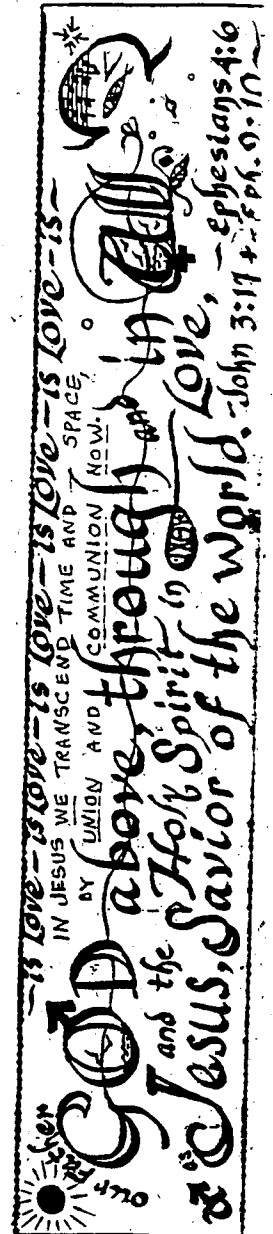 —is Love—is Love—is Love—is Love—is Love—is—
IN JESUS WE TRANSCEND TIME AND SPACE,
BY UNION AND COMMUNION NOW.
our Father
GOD above, through and in All
and the Holy Spirit in Love, —Ephesians 4:6
as Jesus, Savior of the World. —John 3:17 + Eph. 9:10—